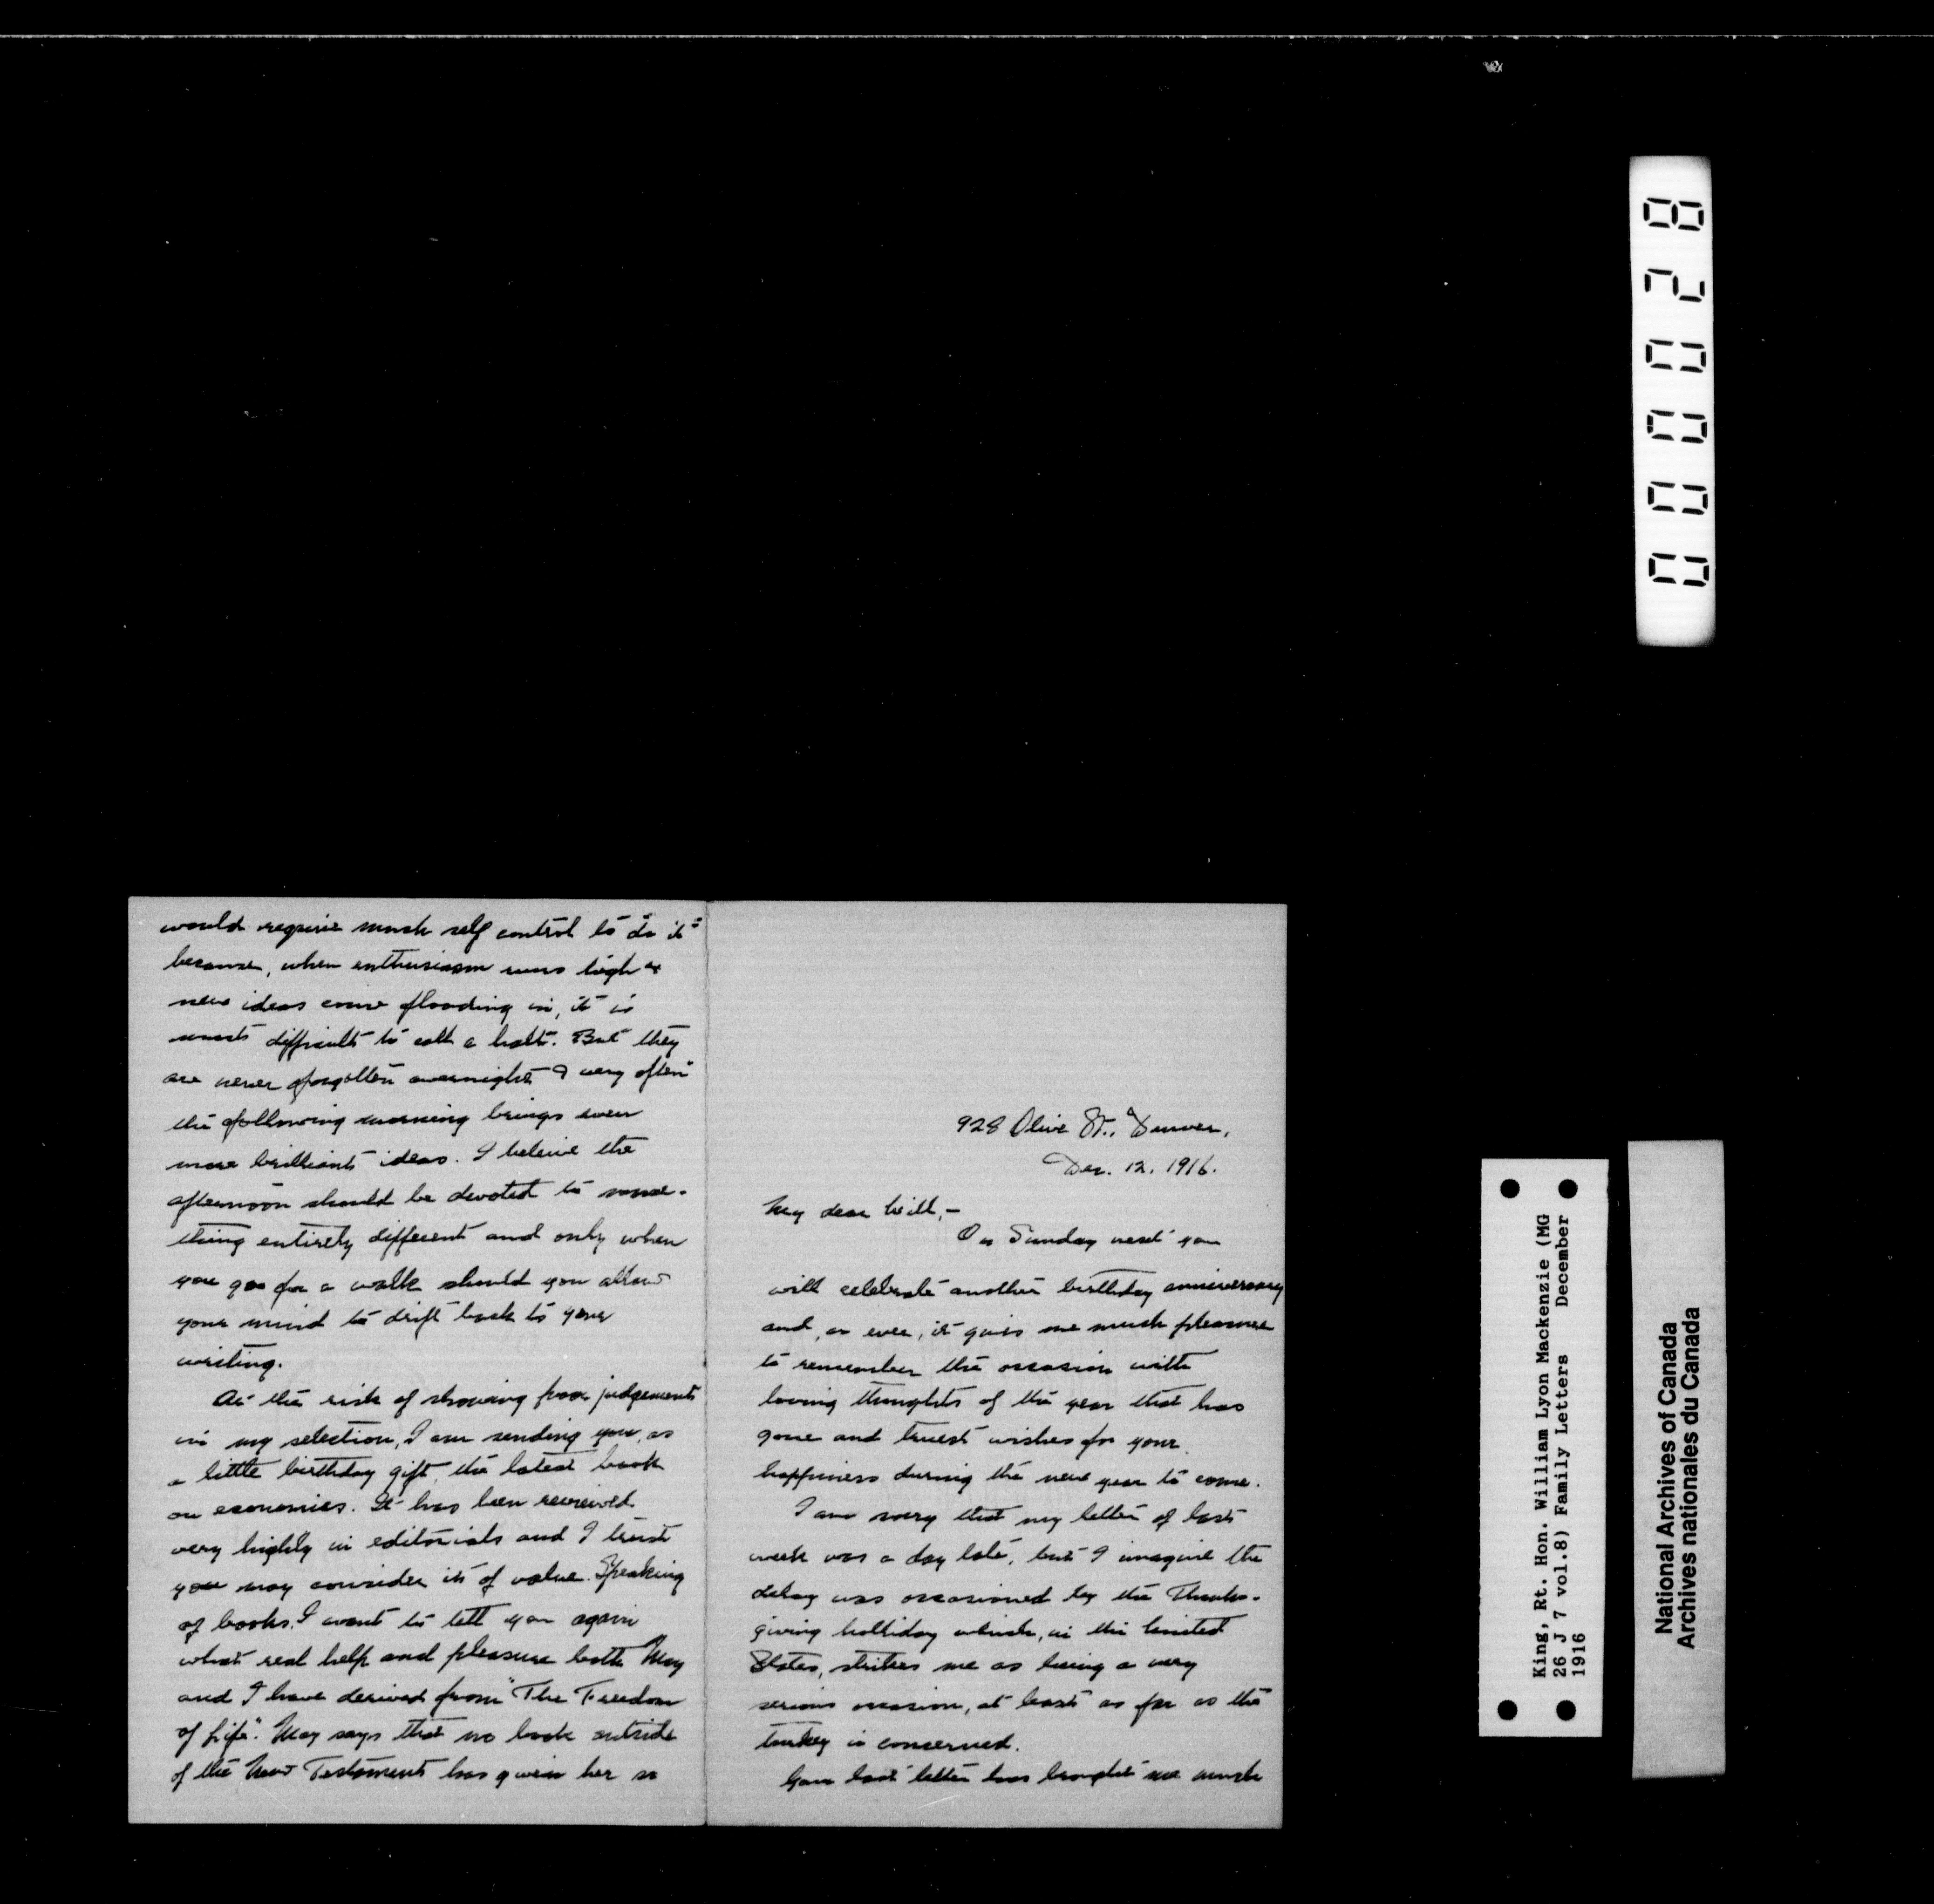 would require much self control to do it
because, when enthusiasm runs high &
new ideas come flooding in, it is
most difficult to call a halt. But they
are never forgotten overnight & very often
the following morning brings even
more brilliant ideas. I beleive the
afternoon should be devoted to some-
thing entirely different and only when
you go for a walk should you allow
your mind to drift back to your
writing.
At the risk of showing poor judgement
in my selection, I am sending you, as
a little birthday gift, the latest book
on economics. It has been reviewed
very highly in editorials and I trust
you may consider it of value. Speaking
of books, I want to tell you again
what real help and pleasure both May
and I have derived from "The Freedom
of Life". May says that no book outside
of the New Testament has given her so
928 Olive St., Denver,
Dec. 12, 1916.
My dear Will,-
On Sunday next you
will celebrate another birthday anniversary
and, as ever, it gives me much pleasure
to remember the occasion with
loving thoughts of the year that has
gone and truest wishes for your
happiness during the new year to come.
I am sorry that my letter of last
week was a day late, but I imagine the
delay was occasioned by the Thanks-
giving holliday which, in the United
States, strikes me as being a very
serious occasion, at least as far as the
turkey is concerned.
Your last letter has brought me much
000028
King, Rt. Hon. William Lyon Mackenzie (MG
26 J 7 vol.8) Family Letters December
1916
National Archives of Canada
Archives nationales du Canada